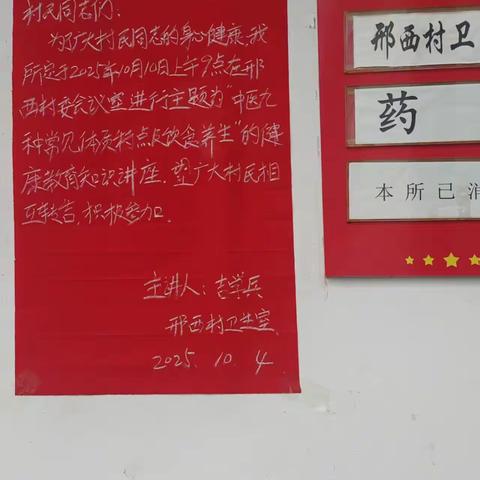 村民同志们:
为了广大村民同志的身心健康,我
所定于2025年10月10日上午9点在邢
西村委会议室进行主题为“中医九
种常见体质特点及饮食养生”的健
康教育知识讲座,望广大村民相
互转告,积极参加。
主讲人:吉学兵
邢西村卫生室
2025.10.4
邢西村卫
药
本所已消